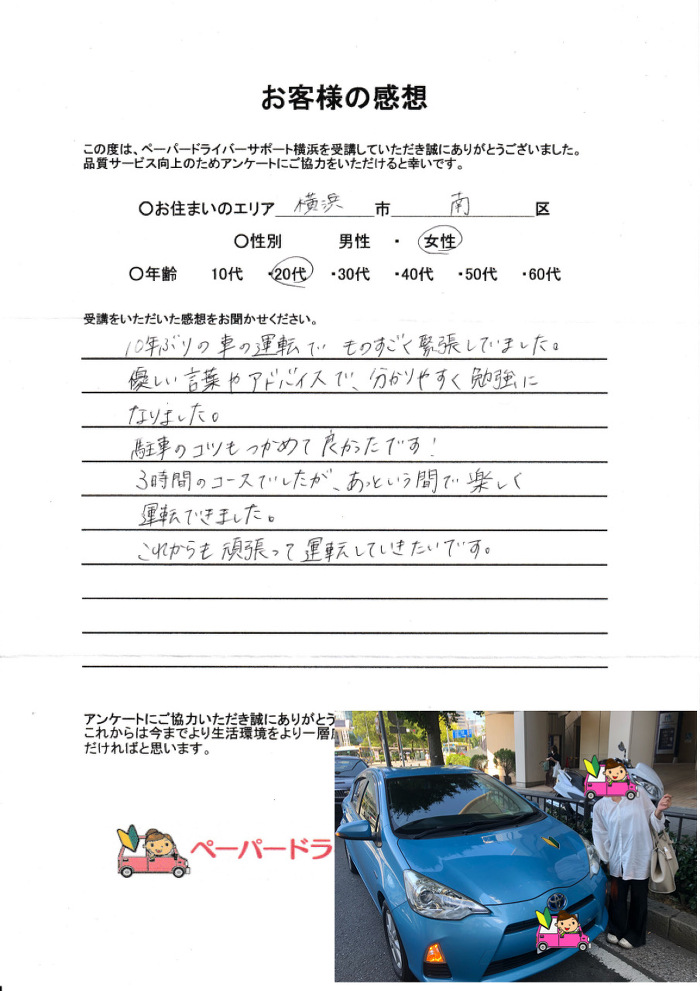 お客様の感想
この度は、ペーパードライバーサポート横浜を受講していただき誠にありがとうございました。
品質サービス向上のためアンケートにご協力をいただけると幸いです。
〇お住まいのエリア 横浜 市 南 区
〇性別 男性 ・ 女性
〇年齢 10代 ・20代 ・30代 ・40代 ・50代 ・60代
受講をいただいた感想をお聞かせください。
10年ぶりの車の運転でものすごく緊張していました。
優しい言葉やアドバイスで、分かりやすく勉強に
なりました。
駐車のコツもつかめて良かったです!
3時間のコースでしたが、あっという間で楽しく
運転できました。
これからも頑張って運転していきたいです。
アンケートにご協力いただき誠にありがとう
これからは今までより生活環境をより一層
だければと思います。
ペーパードラ